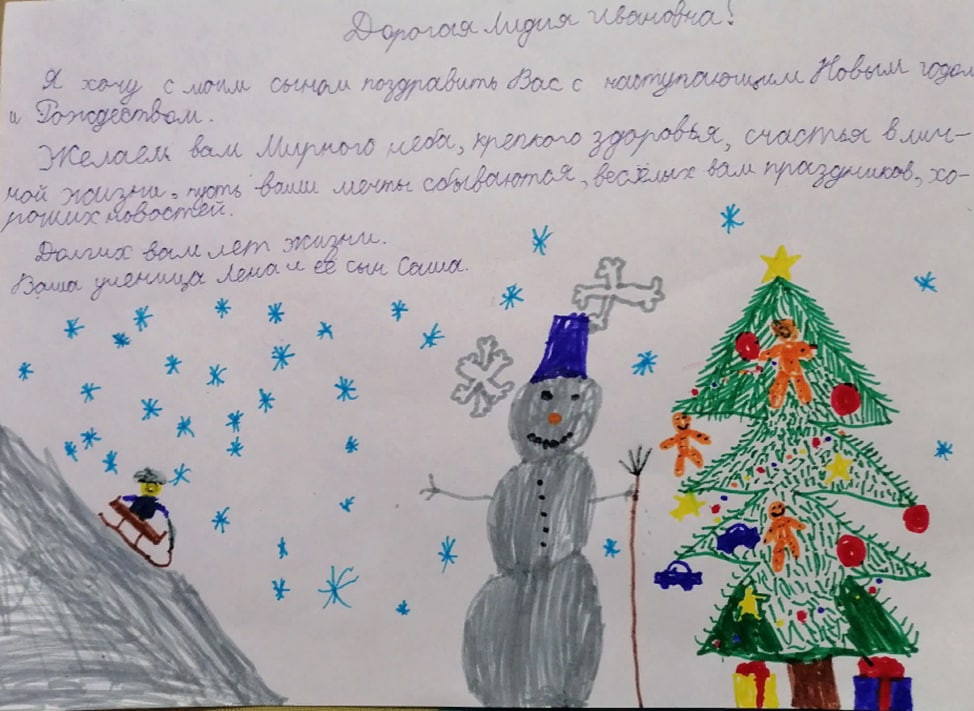 Дорогая Лидия Ивановна!
Я хочу с моим сыном поздравить Вас с наступающим Новым годом
и Рождеством.
Желаем вам Мирного неба, крепкого здоровья, счастья в лич-
ной жизни, пусть ваши мечты сбываются, весёлых вам праздников, хо-
роших новостей.
Долгих вам лет жизни.
Ваша ученица Лена и её сын Саша.